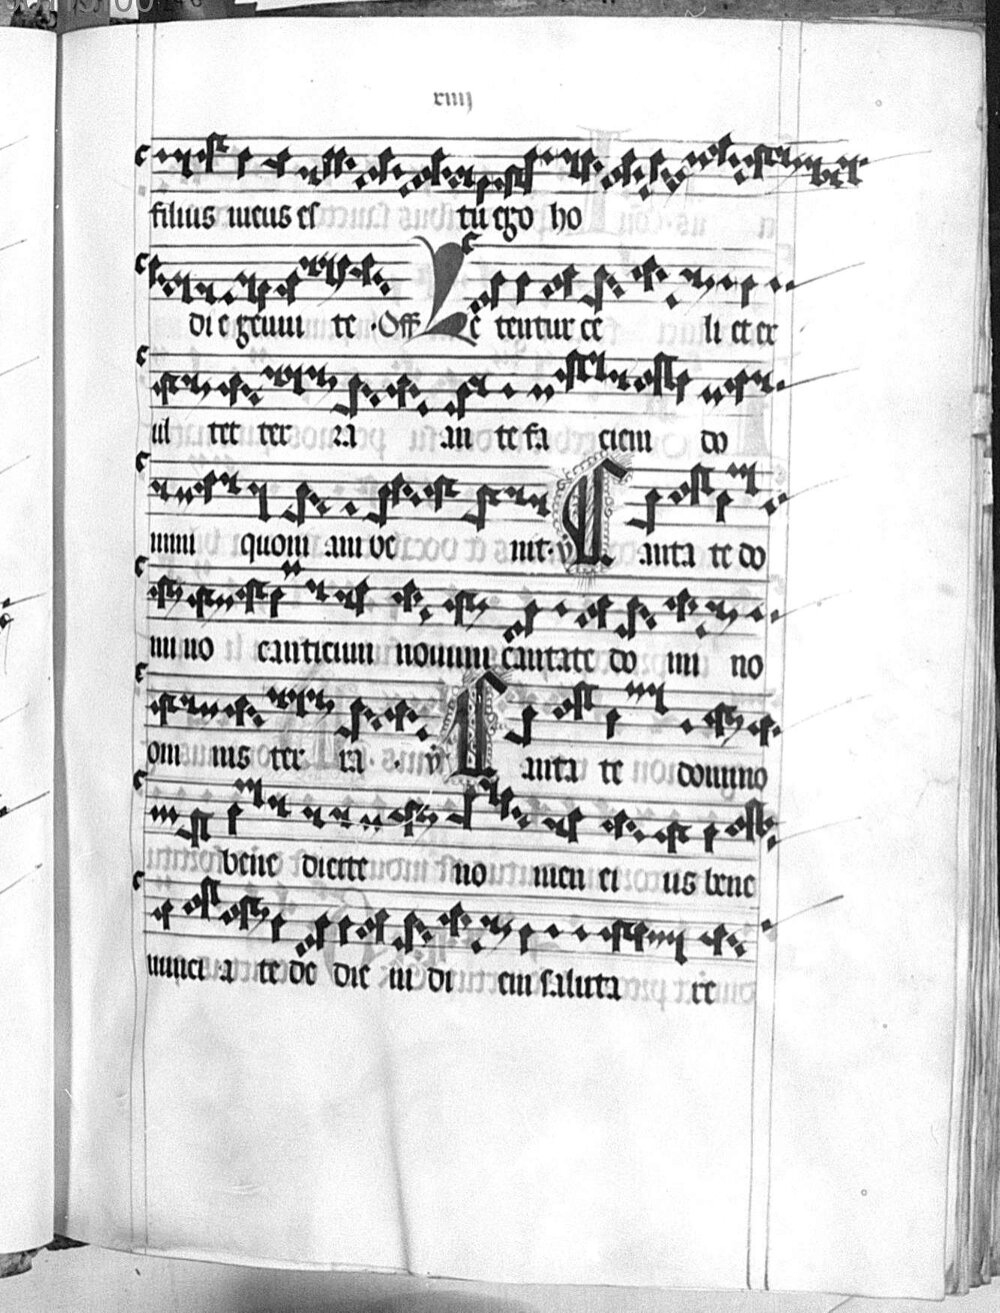 xiiij
filius meus es tu ego ho
di e genui te · Off Le tentur ce li et ex
ul tet ter ra an te fa ciem do
mini quoni am ve nit · v̓ Canta te do
mi no canticum novum cantate do mi no
om nis ter ra · v̓ Canta te domino
bene dicite no men ei us bene
nunci a te de die in di em saluta re